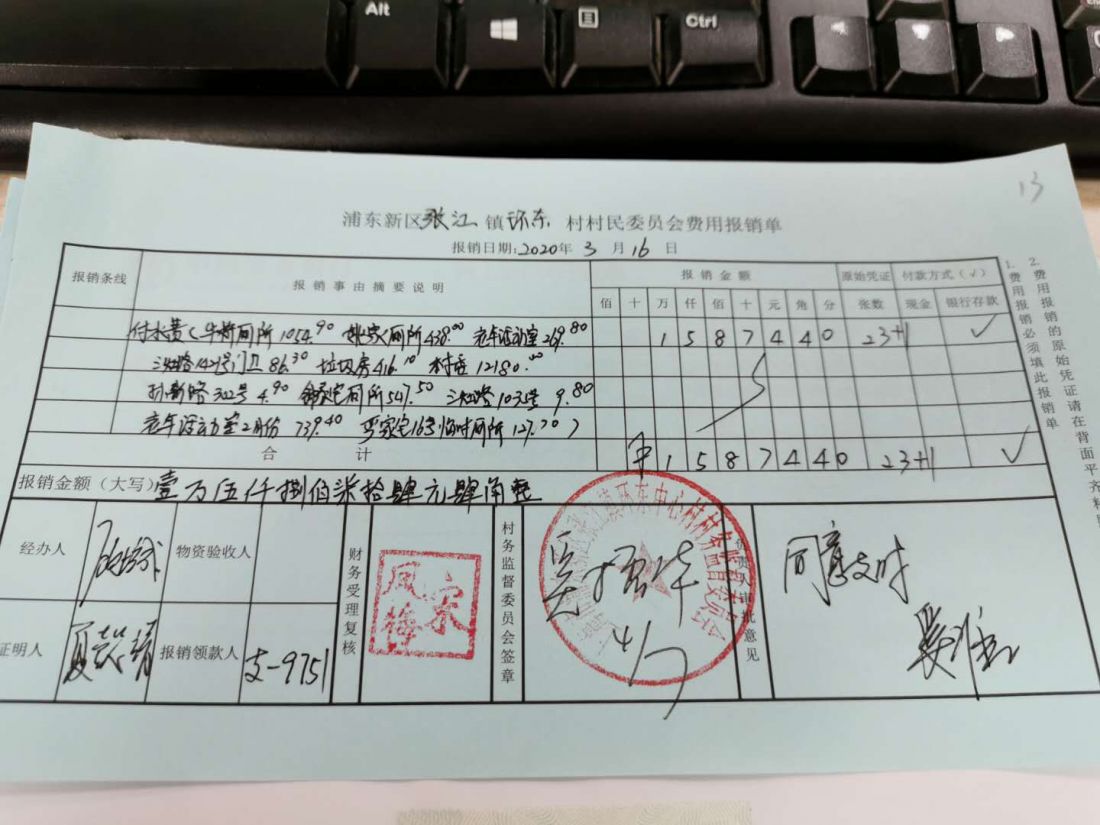 Alt
Ctrl
13
浦东新区张江镇环东村村民委员会费用报销单
报销日期:2020年3月16日
报销条线 报销事由摘要说明 报销金额 原始凭证 付款方式(√)
佰 十 万 仟 佰 十 元 角 分 张数 现金 银行存款
付水费(牛桥厕所1054.90 姚家厕所438.00 老年活动室269.80 1 5 8 7 4 4 0 23+1 √
三灶路1421号门卫86.30 垃圾房416.10 村委12180.00
孙新路302号4.90 宅厕所547.50 三灶路1035号9.80
老年活动室2月份739.40 家宅16号临时厕所127.70)
合计 1 5 8 7 4 4 0 23+1 √
报销金额(大写)壹万伍仟捌佰柒拾肆元肆角整
经办人 物资验收人 财务受理复核 宋凤梅 村务监督委员会签章 4/7 负责人审批意见 同意支付
证明人 报销领款人 支-9751
张江镇环东中心村村务监督委员会
1.费用报销必须填此报销单
2.费用报销的原始凭证请在背面平齐粘